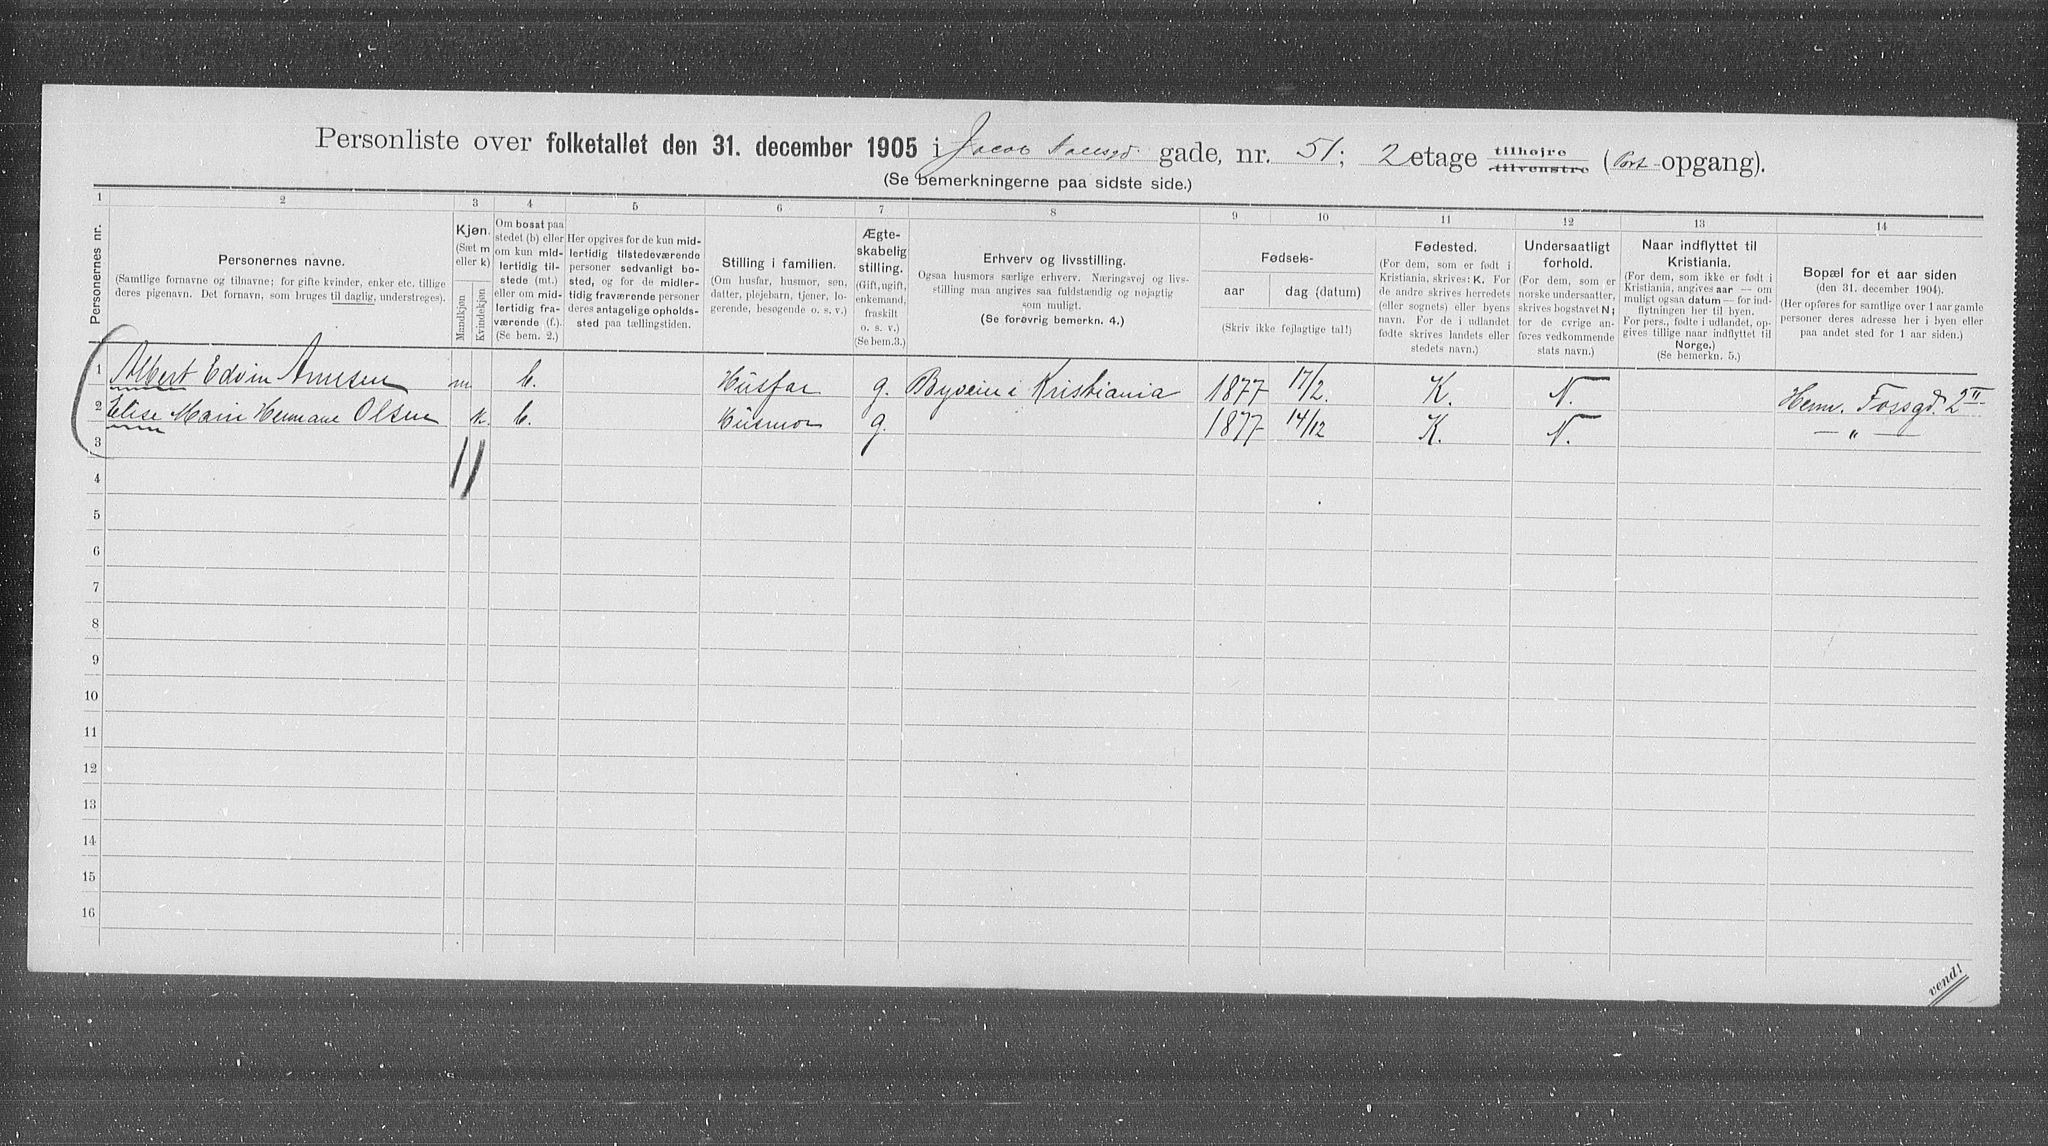 Personliste over folketallet den 31. december 1905 i Jacob Aallsgd. gade, nr. 51; 2 etage tilhøjre tilvenstre (Port opgang).
(Se bemerkningerne paa sidste side.)
1 2 3 4 5 6 7 8 9 10 11 12 13 14
Personernes nr.
Personernes navne.
(Samtlige fornavne og tilnavne; for gifte kvinder, enker etc. tillige
deres pigenavn. Det fornavn, som bruges til daglig, understreges).
Kjøn.
(Sæt m
eller k)
Mandkjøn
Kvindekjøn
Om bosat paa
stedet (b) eller
om kun mid-
lertidig til-
stede (mt.)
eller om mid-
lertidig fra-
værende (f.).
(Se bem. 2.)
Her opgives for de kun mid-
lertidig tilstedeværende
personer sedvanligt bo-
sted, og for de midler-
tidig fraværende personer
deres antagelige opholds-
sted paa tællingstiden.
Stilling i familien.
(Om husfar, husmor, søn,
datter, plejebarn, tjener, lo-
gerende, besøgende o. s. v.)
Ægte-
skabelig
stilling.
(Gift, ugift,
enkemand,
fraskilt
o. s. v.)
(Se bem.3.)
Erhverv og livsstilling.
Ogsaa husmors særlige erhverv. Næringsvej og livs-
stilling maa angives saa fuldstændig og nøjagtig
som muligt.
(Se forøvrig bemerkn. 4.)
Fødsels-
aar
dag (datum)
(Skriv ikke fejlagtige tal!)
Fødested.
(For dem, som er født i
Kristiania, skrives: K. For
de andre skrives herredets
(eller sognets) eller byens
navn. For de i udlandet
fødte skrives landets eller
stedets navn.)
Undersaatligt
forhold.
(For dem, som er
norske undersaatter,
skrives bogstavet N;
for de øvrige an-
føres vedkommende
stats navn.)
Naar indflyttet til
Kristiania.
(For dem, som ikke er født i
Kristiania, angives aar — om
muligt ogsaa datum — for ind-
flytningen her til byen.
For pers., fødte i udlandet, op-
gives tillige naar indflyttet til
Norge.)
(Se bemerkn. 5.)
Bopæl for et aar siden
(den 31. december 1904).
(Her opføres for samtlige over 1 aar gamle
personer deres adresse her i byen eller
paa andet sted for 1 aar siden.)
1 Albert Edvin Arnesen m b. Husfar g. Byvein i Kristiania 1877 17/2. K. N. Henr. Fossgd. 2 II
2 Elise Marie Hermane Olsen k. b. Husmor g. 1877 14/12 K. N. — " —
3
4
5
6
7
8
9
10
11
12
13
14
15
16
vend!